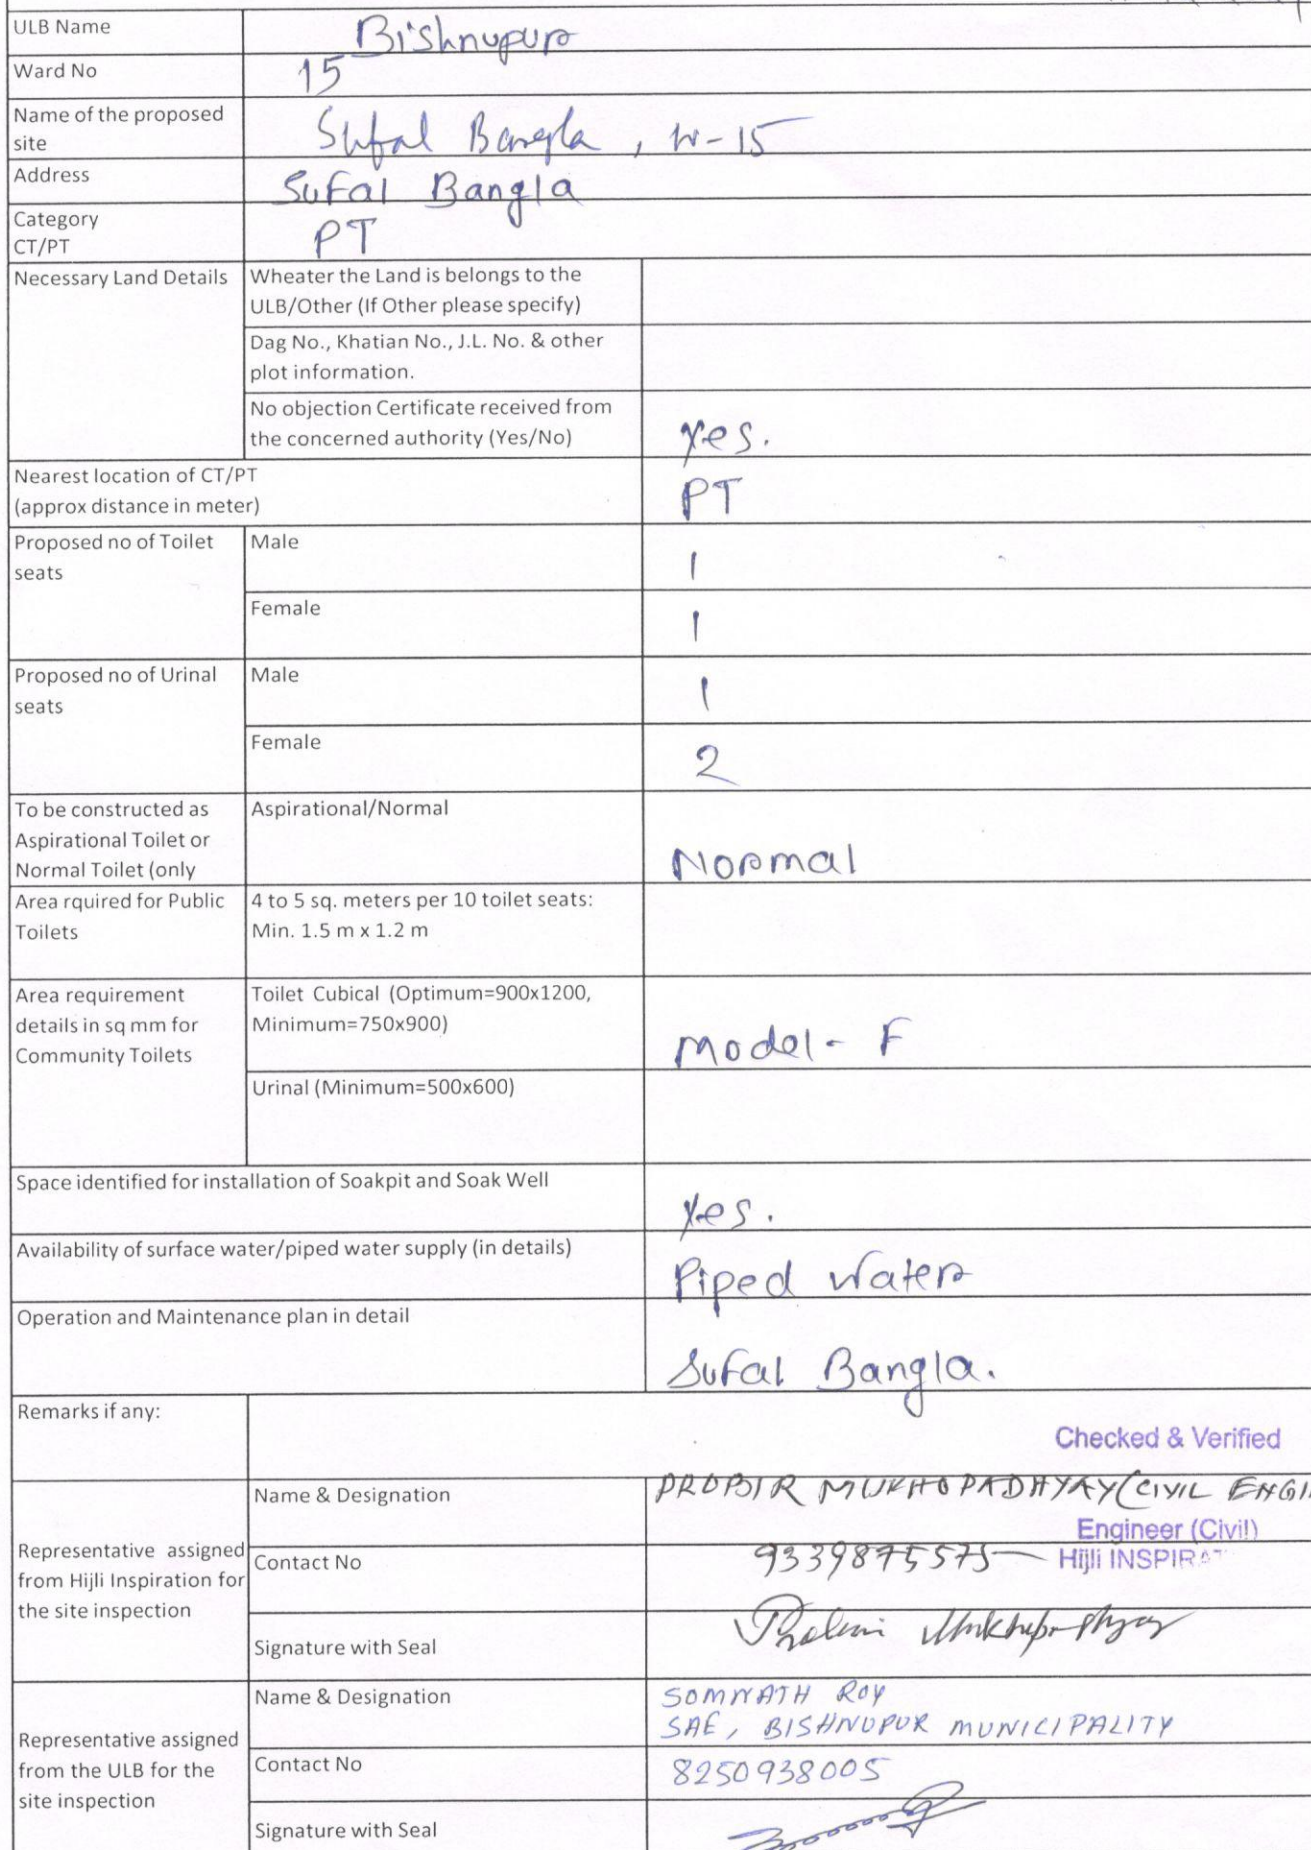 ULB Name
Bishnupur
Ward No
15
Name of the proposed
site
Sufal Bangla, W-15
Address
Sufal Bangla
Category
CT/PT
PT
Necessary Land Details
Wheater the Land is belongs to the
ULB/Other (If Other please specify)
Dag No., Khatian No., J.L. No. & other
plot information.
No objection Certificate received from
the concerned authority (Yes/No)
Yes.
Nearest location of CT/PT
(approx distance in meter)
PT
Proposed no of Toilet
seats
Male
1
Female
1
Proposed no of Urinal
seats
Male
1
Female
2
To be constructed as
Aspirational Toilet or
Normal Toilet (only
Aspirational/Normal
Normal
Area rquired for Public
Toilets
4 to 5 sq. meters per 10 toilet seats:
Min. 1.5 m x 1.2 m
Area requirement
details in sq mm for
Community Toilets
Toilet Cubical (Optimum=900x1200,
Minimum=750x900)
Model - F
Urinal (Minimum=500x600)
Space identified for installation of Soakpit and Soak Well
Yes.
Availability of surface water/piped water supply (in details)
Piped Water
Operation and Maintenance plan in detail
Sufal Bangla.
Remarks if any:
Checked & Verified
Representative assigned
from Hijli Inspiration for
the site inspection
Name & Designation
PROBIR MUKHOPADHYAY (CIVIL ENGI
Engineer (Civil)
Contact No
9339875575
Hijli INSPIRAT
Signature with Seal
Representative assigned
from the ULB for the
site inspection
Name & Designation
SOMNATH ROY
SAE, BISHNUPUR MUNICIPALITY
Contact No
8250938005
Signature with Seal